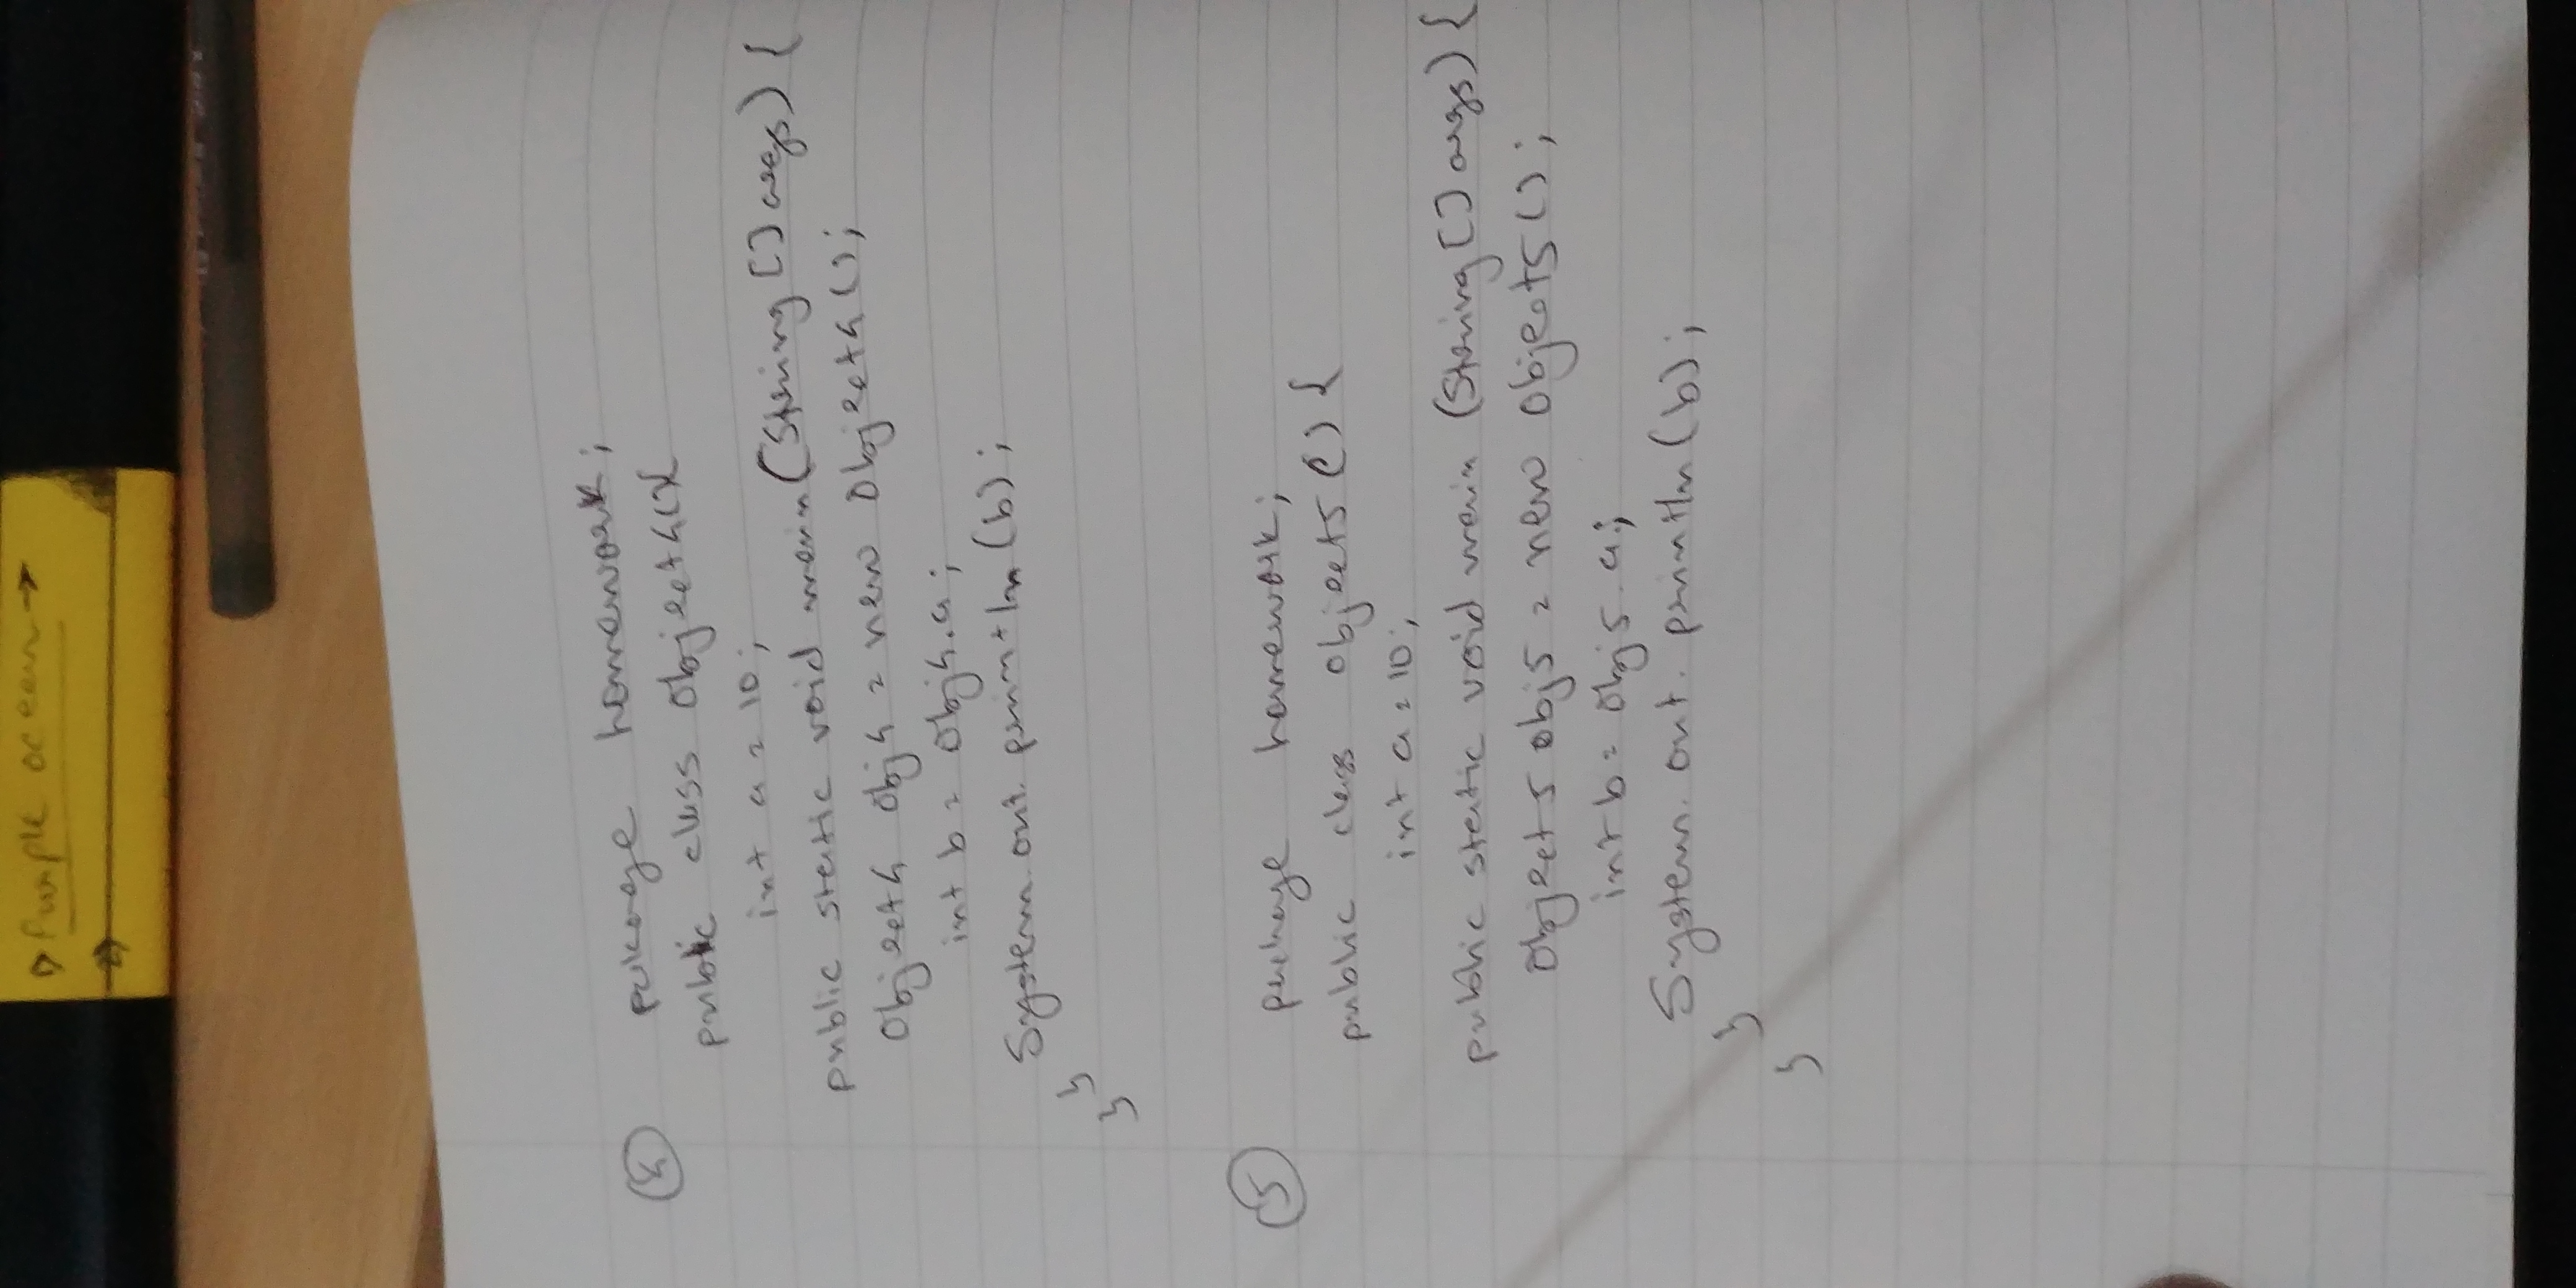 1) Purple ocean →
2)
4 package homework;
public class Object4(){
int a = 10;
public static void main(String [] args) {
Object4 obj4 = new Object4();
int b = obj4.a;
System.out.println(b);
}
}
5 package homework;
public class Object5 () {
int a = 10;
public static void main (String [] args) {
Object5 obj5 = new Object5();
int b = obj5.a;
System.out.println(b);
}
}